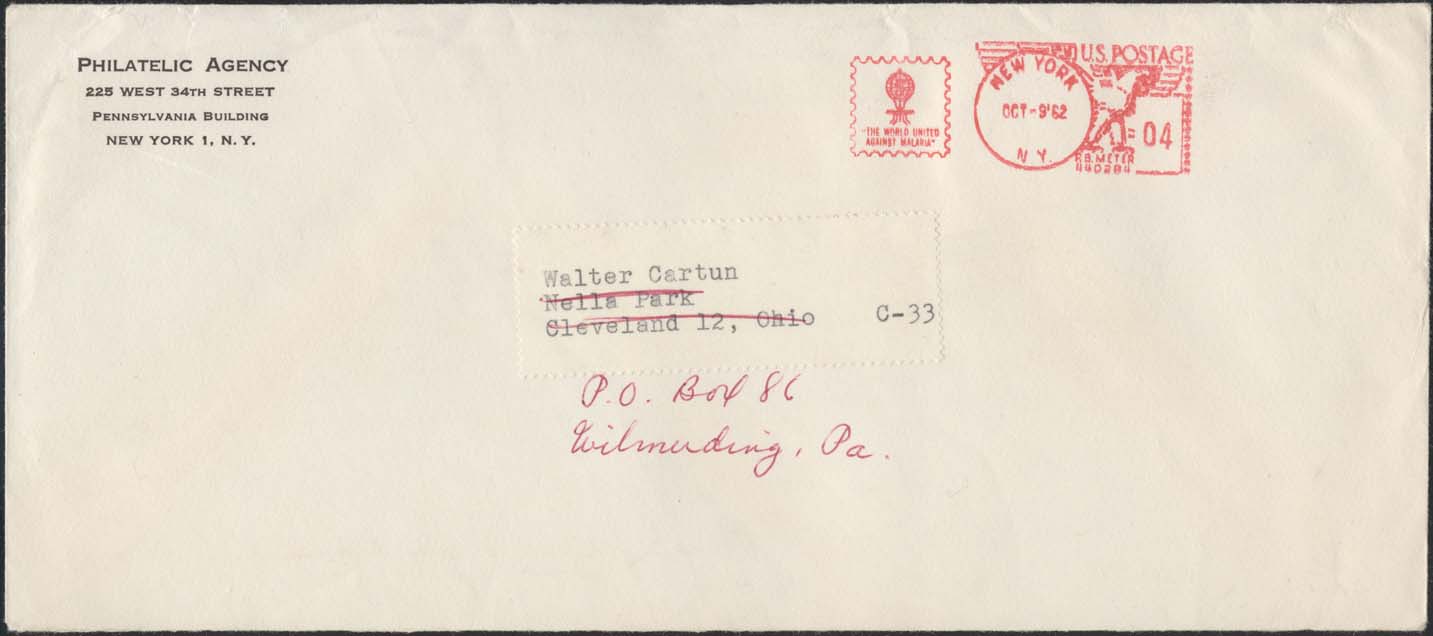 PHILATELIC AGENCY
225 WEST 34TH STREET
PENNSYLVANIA BUILDING
NEW YORK 1, N. Y.
"THE WORLD UNITED
AGAINST MALARIA"
NEW YORK
OCT-9'62
N Y.
U.S. POSTAGE
04
P.B. METER
440284
Walter Cartun
Nella Park
Cleveland 12, Ohio C-33
P.O. Box 86
Wilmerding, Pa.